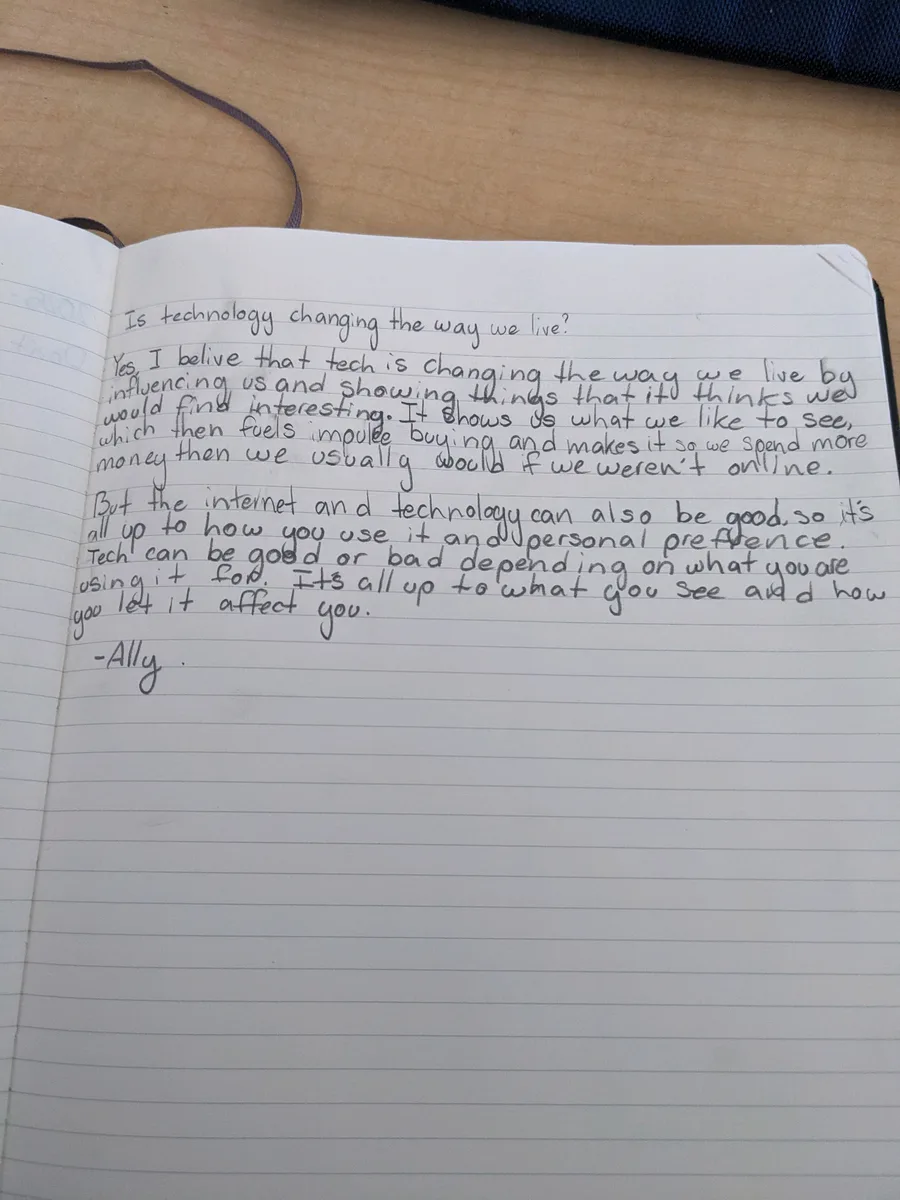 Is technology changing the way we live?
Yes, I belive that tech is changing the way we live by
influencing us and showing things that it thinks we
would find interesting. It shows us what we like to see,
which then fuels impulse buying and makes it so we spend more
money then we usually would if we weren't online.
But the internet and technology can also be good, so it's
all up to how you use it and personal prefrence.
Tech can be good or bad depending on what you are
using it for. It's all up to what you see and how
you let it affect you.
-Ally